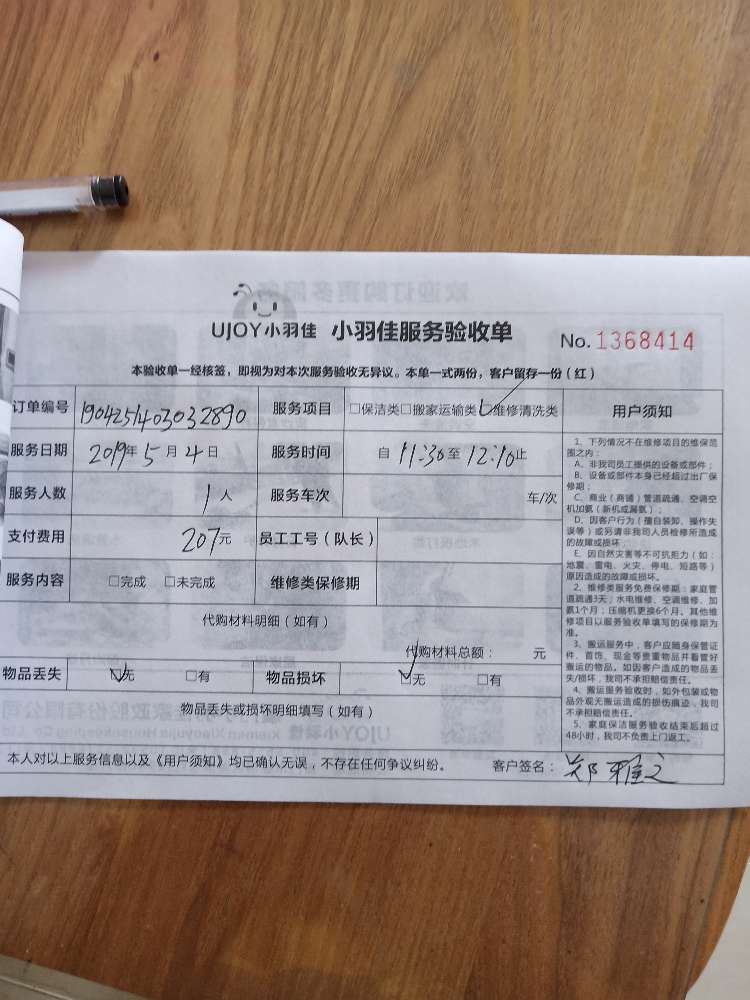 UJOY小羽佳 小羽佳服务验收单 No.1368414
本验收单一经核签，即视为对本次服务验收无异议。本单一式两份，客户留存一份（红）
订单编号 1904251403032890 服务项目 □保洁类□搬家运输类□维修清洗类 用户须知
服务日期 2019年5月4日 服务时间 自11:30至12:10止
服务人数 1人 服务车次 车/次
支付费用 207元 员工工号（队长）
服务内容 □完成 □未完成 维修类保修期
代购材料明细（如有）
代购材料总额： 元
物品丢失 □无 □有 物品损坏 □无 □有
物品丢失或损坏明细填写（如有）
1、下列情况不在维修项目的维保范
围之内：
A、非我司员工提供的设备或部件；
B、设备或部件本身已经超过出厂保
修期；
C、商业（商铺）管道疏通、空调空
机加氨（新机或漏氨）；
D、因客户行为（擅自装卸、操作失
误等）或另请非我司人员检修所造成
的故障或损坏；
E、因自然灾害等不可抗拒力（如：
地震、雷电、火灾、停电、短路等）
原因造成的故障或损坏。
2、维修类服务免费保修期：家庭管
道疏通3天；水电维修、空调维修、加
氨1个月；压缩机更换6个月。其他维
修项目以服务验收单填写的保修期为
准。
3、搬运服务中，客户应随身保管证
件、首饰、现金等贵重物品并看管好
搬运的物品。如因客户造成的物品丢
失/损坏，我司不承担赔偿责任。
4、搬运服务验收时，如外包装或物
品外观无搬运造成的损伤痕迹，我司
不承担赔偿责任。
5、家庭保洁服务验收结束后超过
48小时，我司不负责上门返工。
本人对以上服务信息以及《用户须知》均已确认无误，不存在任何争议纠纷。 客户签名：郑雅文